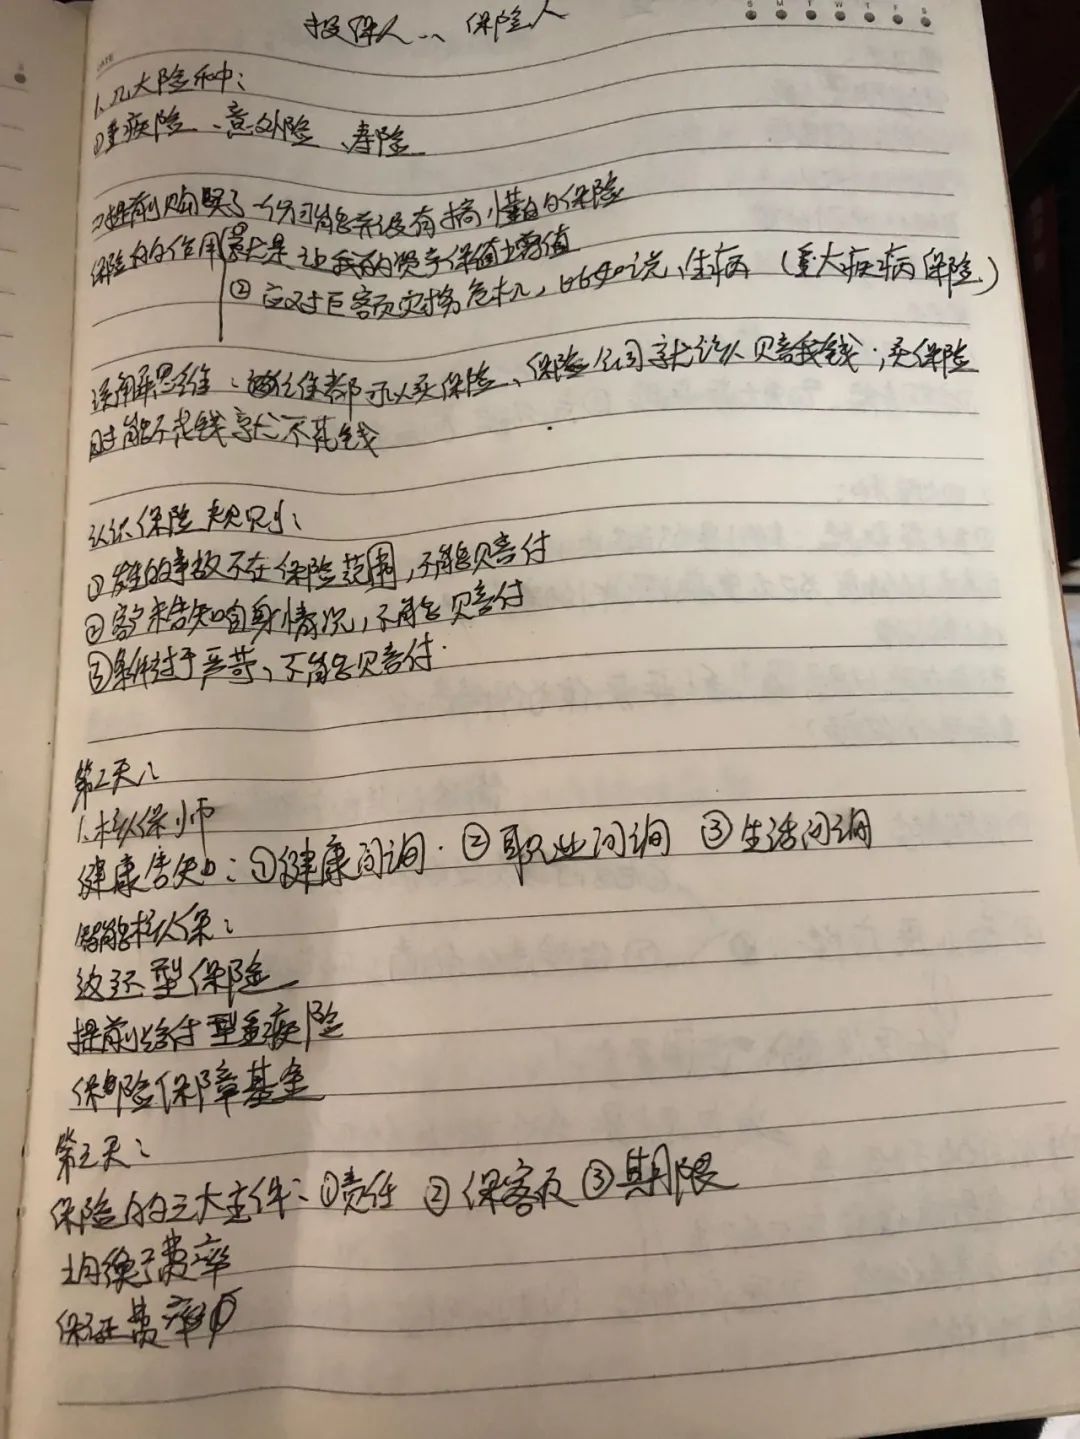 投保人、、保险人
S M T W T F S
DATE
1、几大险种：
①重疾险、意外险、寿险
②提前购买了一份可能并没有搞懂的保险
保险的的作用①就是让我的资产保值增值
②应对巨额灾楊危机，比如说，生病（重大疾病保险）
误解思维：往往都可以买保险、保险公司就该认赔我钱；买保险
时能不花钱就不花钱
认识保险规则：
①发生的事故不在保险范围，不能赔付
②客户未告知自身情况，不能赔付
③条件过于严苛，不能赔付.
第2天：
1.核保师
健康告知：①健康问询.②职业问询 ③生活问询
智能核保：
返还型保险
提前给付型重疾险
保险保障基金
第三天：
保险的的三大主件：①责任 ②保额 ③期限
均衡费率
保证费率